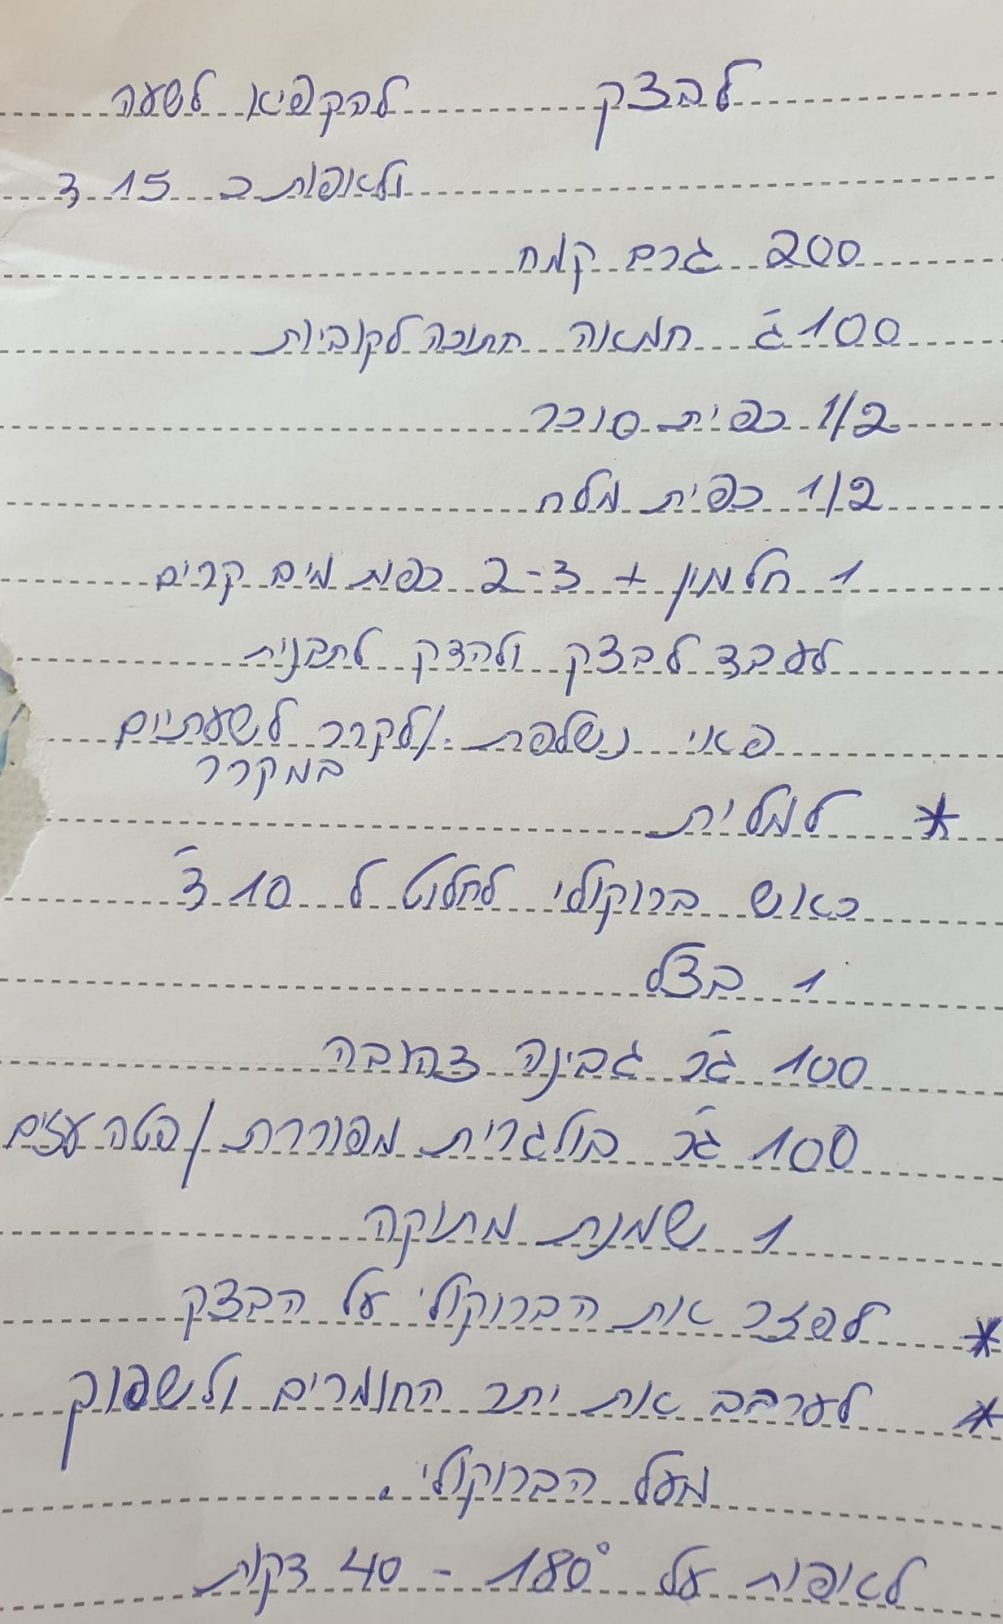 לבצק להקפיא לשעה
ולאפות כ 15 ד
200 גרם קמח
100 ג' חמאה חתוכה לקוביות
1/2 כפית סוכר
1/2 כפית מלח
1 חלמון + 2-3 כפות מים קרים
לעבד לבצק ולהדק לתבנית
פאי נשלפת. /לקרר לשעתיים
במקרר
* למלית
ראש ברוקולי לחלוט ל 10 ד'
1 בצל
100 גר' גבינה צהובה
100 גר' בולגרית מפוררת / פטה עזים
1 שמנת מתוקה
* לפזר את הברוקולי על הבצק
* לערבב את יתר החומרים ולשפוך
מעל הברוקולי.
לאפות על 180° - 40 דקות